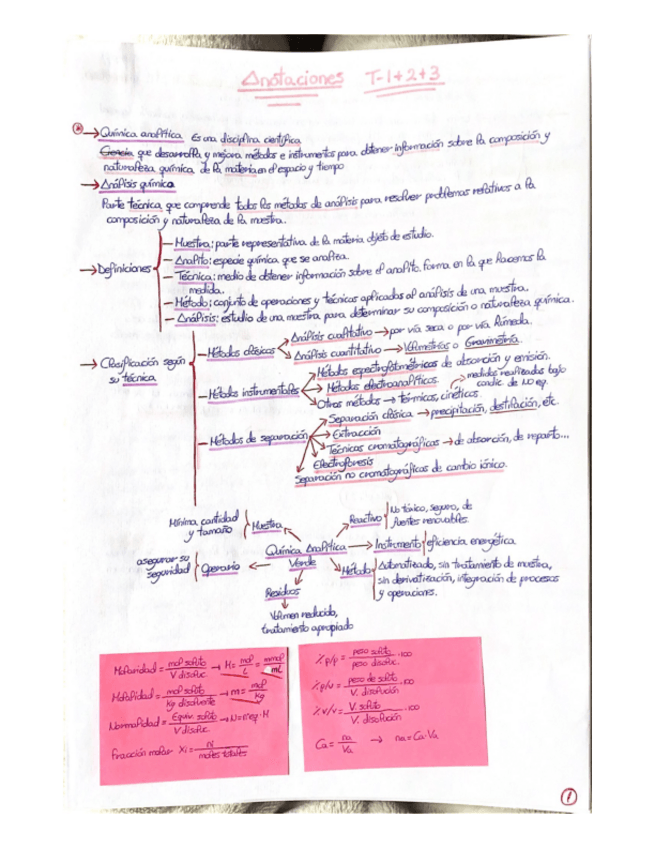 Anotaciones T-1+2+3
→ Química analítica Es una disciplina científica
Ciencia que desarrolla y mejora métodos e instrumentos para obtener información sobre la composición y
naturaleza química de la materia en el espacio y tiempo
→ Análisis química
Parte técnica que comprende todos los métodos de análisis para resolver problemas relativos a la
composición y naturaleza de la muestra.
→ Definiciones
— Muestra: parte representativa de la materia objeto de estudio.
— Analito: especie química que se analiza.
— Técnica: medio de obtener información sobre el analito. forma en la que hacemos la
medida.
— Método: conjunto de operaciones y técnicas aplicadas al análisis de una muestra.
— Análisis: estudio de una muestra para determinar su composición o naturaleza química.
→ Clasificación según
su técnica
— Métodos clásicos
Análisis cualitativo → por vía seca o por vía húmeda.
Análisis cuantitativo → Volumetrías o Gravimetría.
— Métodos instrumentales
Métodos espectrofotométricos de absorción y emisión.
Métodos electroanalíticos.
Otros métodos → térmicos, cinéticos.
→ medidas realizadas bajo
condic. de NO eq.
— Métodos de separación
Separación clásica → precipitación, destilación, etc.
Extracción
Técnicas cromatográficas → de absorción, de reparto...
Electroforesis
Separación no cromatográficas de cambio iónico.
Química Analítica
Verde
Mínima cantidad
y tamaño
Muestra
Reactivo
No tóxico, seguro, de
fuentes renovables.
Instrumento
eficiencia energética
asegurar su
seguridad
Operario
Método
Automatizado, sin tratamiento de muestra,
sin derivatización, integración de procesos
y operaciones.
Residuos
Volumen reducido,
tratamiento apropiado
Molaridad = mol soluto / V disoluc → M = mol / L = mmol / mL
Molalidad = mol soluto / Kg disolvente → m = mol / Kg
Normalidad = Equiv. soluto / V disoluc → N = neq · M
Fracción molar Xi = Ni / moles totales
% p/p = peso soluto / peso disoluc. · 100
% p/v = peso de soluto / V. disolución · 100
% v/v = V. soluto / V. disolución · 100
Ca = na / Va → na = Ca · Va
1